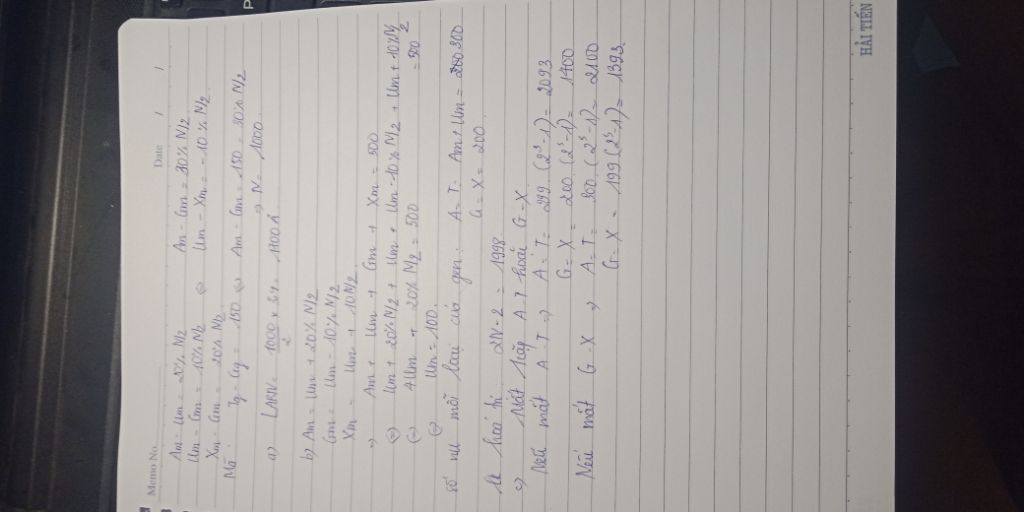 Memo No.
Date / /
Am - Um = 20% N/2 Am - Gm = 30% N/2
Um - Gm = 10% N/2 ⇔ Um - Xm = - 10% N/2
Xm - Gm = 20% N/2
Mà Tg - Gg = 150 ⇔ Am - Gm = 150 = 30% N/2
⇒ N = 1000
a) LARN = 1000/2 x 3,4 = 1700 Å
b) Am = Um + 20% N/2
Gm = Um - 10% N/2
Xm = Um + 10 N/2
⇒ Am + Um + Gm + Xm = 500
⇔ Um + 20% N/2 + Um + Um - 10% N/2 + Um + 10% N/2 = 500
⇔ 4Um + 20% N/2 = 500
⇔ Um = 100
số nu mỗi loại của gen: A = T = Am + Um = 300
G = X = 200
lk hoá trị 2N - 2 = 1998
c) Mất 1 cặp A-T hoặc G-X
Nếu mất A-T ⇒ A = T = 299 (2³-1) = 2093
G = X = 200 (2³-1) = 1400
Nếu mất G-X ⇒ A = T = 300 (2³-1) = 2100
G = X = 199 (2³-1) = 1393.
HẢI TIẾN